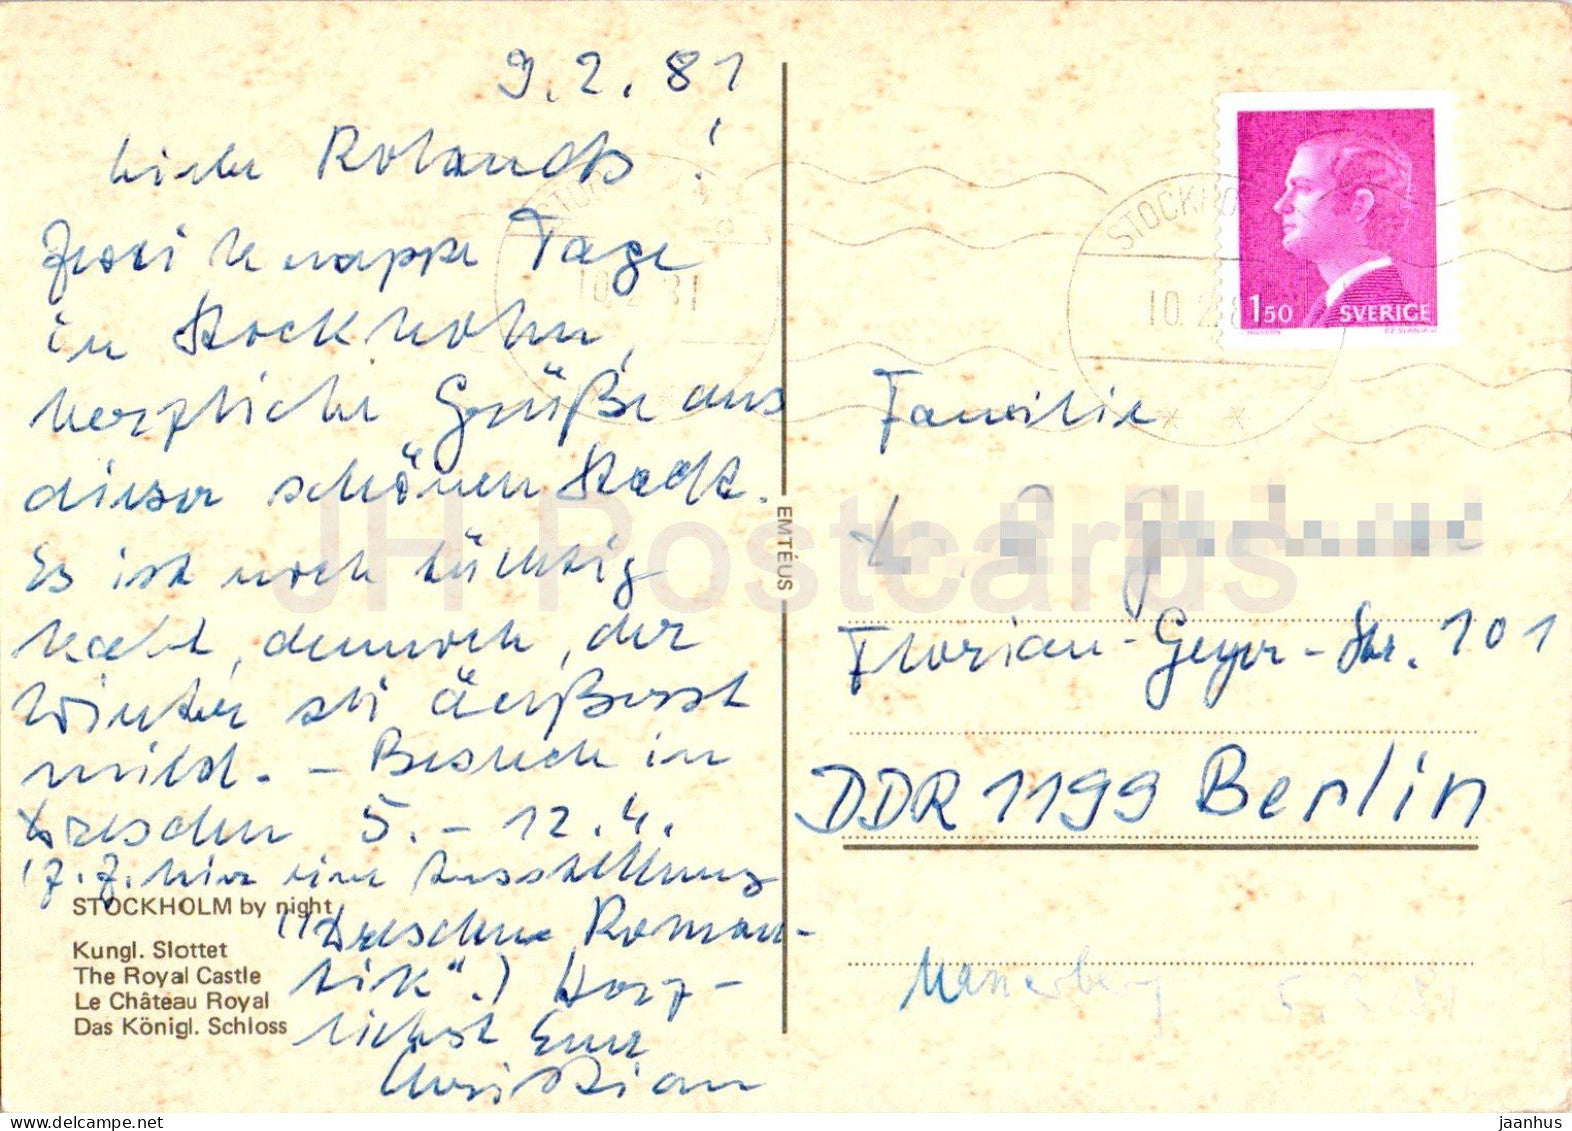 9.2.81
Liebe Rolands!
Zwei knappe Tage
in Stockholm,
herzliche Grüße aus
dieser schönen Stadt.
Es ist noch tüchtig
kalt, dennoch, der
Winter sei äußerst
mild. – Besuch in
Dresden 5.–12.4.
(z.Z. hier eine Ausstellung
"Dresdner Roman-
tik".) Herz-
lichst Euer
Christian
STOCKHOLM by night
Kungl. Slottet
The Royal Castle
Le Château Royal
Das Königl. Schloss
EMTÉUS
STOCKHO
10.2.81
STOCKHO
10.2.8
1.50 SVERIGE
Familie
Florian-Geyer-Str. 101
DDR 1199 Berlin
5.3.81
JH Postcards
delcampe.net
jaanhus